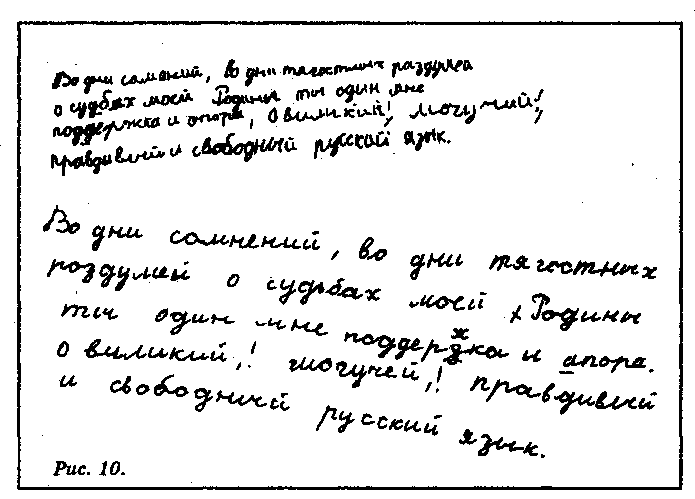 Во дни сомнений, во дни тягостных раздумей
о судьбах моей Родины ты один мне
поддержка и опора, о виликий!, могучий!,
правдивый и свободный русский язык.
Во дни сомнений, во дни тягостных
роздумей о судьбах моей Родины
ты один мне поддержка и апора.
о виликий,! могучей,! правдивый
и свободный русский язык.
Рис. 10.